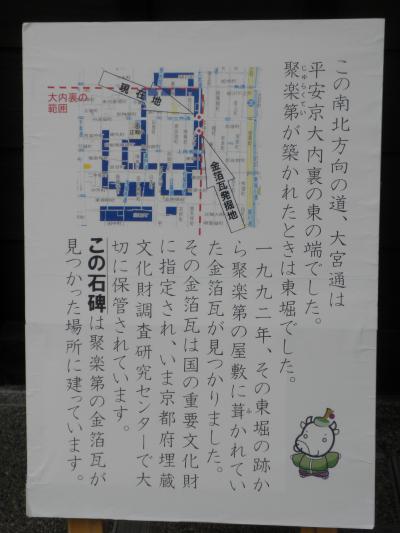 この南北方向の道、大宮通は
平安京大内裏の東の端でした。
聚楽第が築かれたときは東堀でした。
じゅらくてい
一九九二年、その東堀の跡か
ら聚楽第の屋敷に葺かれてい
ふ
た金箔瓦が見つかりました。
その金箔瓦は国の重要文化財
に指定され、いま京都府埋蔵
文化財調査研究センターで大
切に保管されています。
この石碑は聚楽第の金箔瓦が
見つかった場所に建っています。
現在地
大内裏の
範囲
金箔瓦発掘地